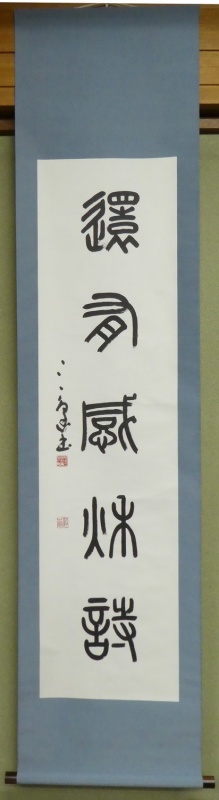 還有感秋詩